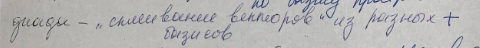 диады – „склеивание векторов“ из разных +
базисов